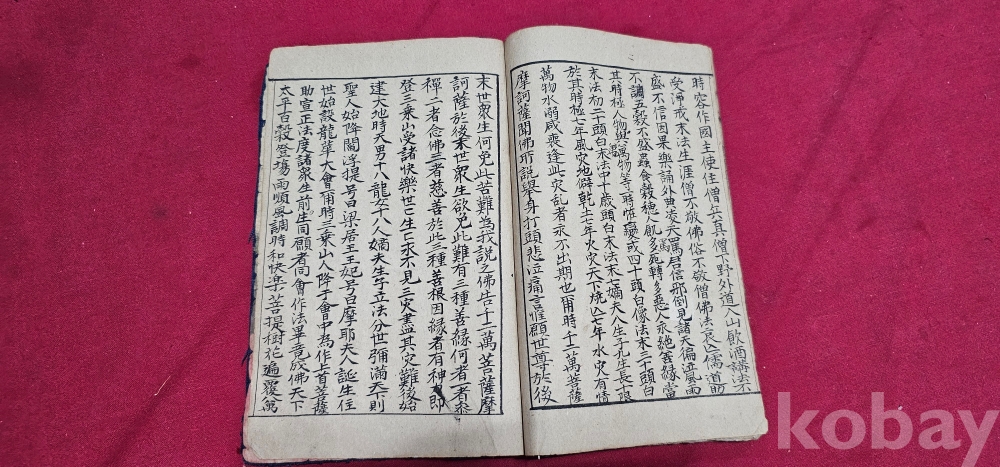 時容作國主使住僧兵其僧下野外道入山飲酒講法不
受淨戒末法生涯僧不敬佛俗不敬僧佛法哀亡儒道
盛不信因果樂誦外典凌天罵君信邪倒見諸天徧泣風雨
不調五穀不盛蟲食穀穗人飢多死轉多惡人永絕善緣當
其時極人物與萬物等一時惟變或四十頭白像法末三十頭白
末法初二十頭白末法中十歲頭白末法末七嫡夫人生子九生長十限
於其時極七年風灾地僻乾土年火灾天下燒亡年水灾有情
萬物水溺咸喪逢此灾乱者永不出期也爾時千二萬菩薩
摩訶薩聞佛所說舉身打頭悲泣痛言惟願世尊於後
末世衆生何免此苦難為我說之佛告千二萬菩薩摩
訶薩於後末世衆生欲免此難有三種善緣何者一者叅
禪二者念佛三者慈善於此三種善根因緣者有神即
登三乘山受諸快樂世亡生亡永不見三灾盡其灾難後始
建大地時天男十八龍女十八人嫡夫生子立法分世彌滿天下則
聖人始降閻浮提号曰梁居王王妃号曰摩耶夫人誕生住
世始設龍華大會爾時三乘山人降于會中為作上首菩薩
助宣正法度諸衆生前生同願者同會作法畢竟成佛天下
太平百穀登場雨順風調時和快樂菩提樹花遍覆萬
kobay